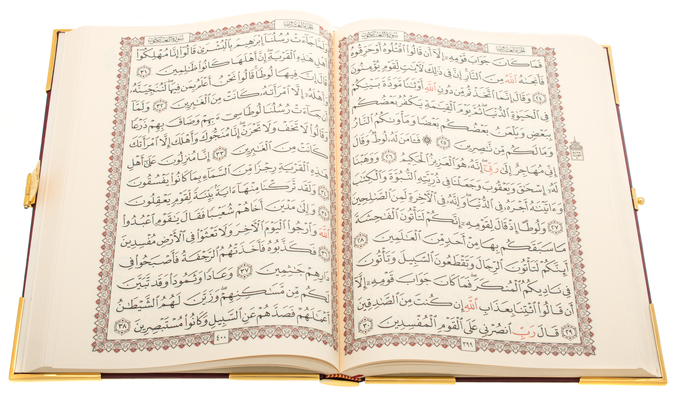 الجزء العشرون سورة العنكبوت
فَمَا كَانَ جَوَابَ قَوْمِهِۦٓ إِلَّآ أَن قَالُوا۟ ٱقْتُلُوهُ أَوْ حَرِّقُوهُ
فَأَنجَىٰهُ ٱللَّهُ مِنَ ٱلنَّارِ إِنَّ فِى ذَٰلِكَ لَـَٔايَـٰتٍ لِّقَوْمٍ يُؤْمِنُونَ
٢٤ وَقَالَ إِنَّمَا ٱتَّخَذْتُم مِّن دُونِ ٱللَّهِ أَوْثَـٰنًا مَّوَدَّةَ بَيْنِكُمْ
فِى ٱلْحَيَوٰةِ ٱلدُّنْيَا ثُمَّ يَوْمَ ٱلْقِيَـٰمَةِ يَكْفُرُ بَعْضُكُم
بِبَعْضٍ وَيَلْعَنُ بَعْضُكُم بَعْضًا وَمَأْوَىٰكُمُ ٱلنَّارُ
وَمَا لَكُم مِّن نَّـٰصِرِينَ ٢٥ ۞ فَـَٔامَنَ لَهُۥ لُوطٌ وَقَالَ
إِنِّى مُهَاجِرٌ إِلَىٰ رَبِّىٓ إِنَّهُۥ هُوَ ٱلْعَزِيزُ ٱلْحَكِيمُ ٢٦ وَوَهَبْنَا
لَهُۥٓ إِسْحَـٰقَ وَيَعْقُوبَ وَجَعَلْنَا فِى ذُرِّيَّتِهِ ٱلنُّبُوَّةَ وَٱلْكِتَـٰبَ
وَءَاتَيْنَـٰهُ أَجْرَهُۥ فِى ٱلدُّنْيَا وَإِنَّهُۥ فِى ٱلْـَٔاخِرَةِ لَمِنَ ٱلصَّـٰلِحِينَ
٢٧ وَلُوطًا إِذْ قَالَ لِقَوْمِهِۦٓ إِنَّكُمْ لَتَأْتُونَ ٱلْفَـٰحِشَةَ
مَا سَبَقَكُم بِهَا مِنْ أَحَدٍ مِّنَ ٱلْعَـٰلَمِينَ ٢٨
أَئِنَّكُمْ لَتَأْتُونَ ٱلرِّجَالَ وَتَقْطَعُونَ ٱلسَّبِيلَ وَتَأْتُونَ
فِى نَادِيكُمُ ٱلْمُنكَرَ فَمَا كَانَ جَوَابَ قَوْمِهِۦٓ إِلَّآ
أَن قَالُوا۟ ٱئْتِنَا بِعَذَابِ ٱللَّهِ إِن كُنتَ مِنَ ٱلصَّـٰدِقِينَ
٢٩ قَالَ رَبِّ ٱنصُرْنِى عَلَى ٱلْقَوْمِ ٱلْمُفْسِدِينَ ٣٠
٣٩٩
الجزء العشرون سورة العنكبوت
وَلَمَّا جَآءَتْ رُسُلُنَآ إِبْرَٰهِيمَ بِٱلْبُشْرَىٰ قَالُوٓا۟ إِنَّا مُهْلِكُوٓا۟
أَهْلِ هَـٰذِهِ ٱلْقَرْيَةِ إِنَّ أَهْلَهَا كَانُوا۟ ظَـٰلِمِينَ ٣١
قَالَ إِنَّ فِيهَا لُوطًا قَالُوا۟ نَحْنُ أَعْلَمُ بِمَن فِيهَا لَنُنَجِّيَنَّهُۥ
وَأَهْلَهُۥٓ إِلَّا ٱمْرَأَتَهُۥ كَانَتْ مِنَ ٱلْغَـٰبِرِينَ ٣٢ وَلَمَّآ
أَن جَآءَتْ رُسُلُنَا لُوطًا سِىٓءَ بِهِمْ وَضَاقَ بِهِمْ ذَرْعًا
وَقَالُوا۟ لَا تَخَفْ وَلَا تَحْزَنْ إِنَّا مُنَجُّوكَ وَأَهْلَكَ إِلَّا ٱمْرَأَتَكَ
كَانَتْ مِنَ ٱلْغَـٰبِرِينَ ٣٣ إِنَّا مُنزِلُونَ عَلَىٰٓ أَهْلِ
هَـٰذِهِ ٱلْقَرْيَةِ رِجْزًا مِّنَ ٱلسَّمَآءِ بِمَا كَانُوا۟ يَفْسُقُونَ
٣٤ وَلَقَد تَّرَكْنَا مِنْهَآ ءَايَةًۢ بَيِّنَةً لِّقَوْمٍ يَعْقِلُونَ
٣٥ وَإِلَىٰ مَدْيَنَ أَخَاهُمْ شُعَيْبًا فَقَالَ يَـٰقَوْمِ ٱعْبُدُوا۟
ٱللَّهَ وَٱرْجُوا۟ ٱلْيَوْمَ ٱلْـَٔاخِرَ وَلَا تَعْثَوْا۟ فِى ٱلْأَرْضِ مُفْسِدِينَ
٣٦ فَكَذَّبُوهُ فَأَخَذَتْهُمُ ٱلرَّجْفَةُ فَأَصْبَحُوا۟ فِى
دَارِهِمْ جَـٰثِمِينَ ٣٧ وَعَادًا وَثَمُودَا۟ وَقَد تَّبَيَّنَ
لَكُم مِّن مَّسَـٰكِنِهِمْ وَزَيَّنَ لَهُمُ ٱلشَّيْطَـٰنُ
أَعْمَـٰلَهُمْ فَصَدَّهُمْ عَنِ ٱلسَّبِيلِ وَكَانُوا۟ مُسْتَبْصِرِينَ ٣٨
٤٠٠